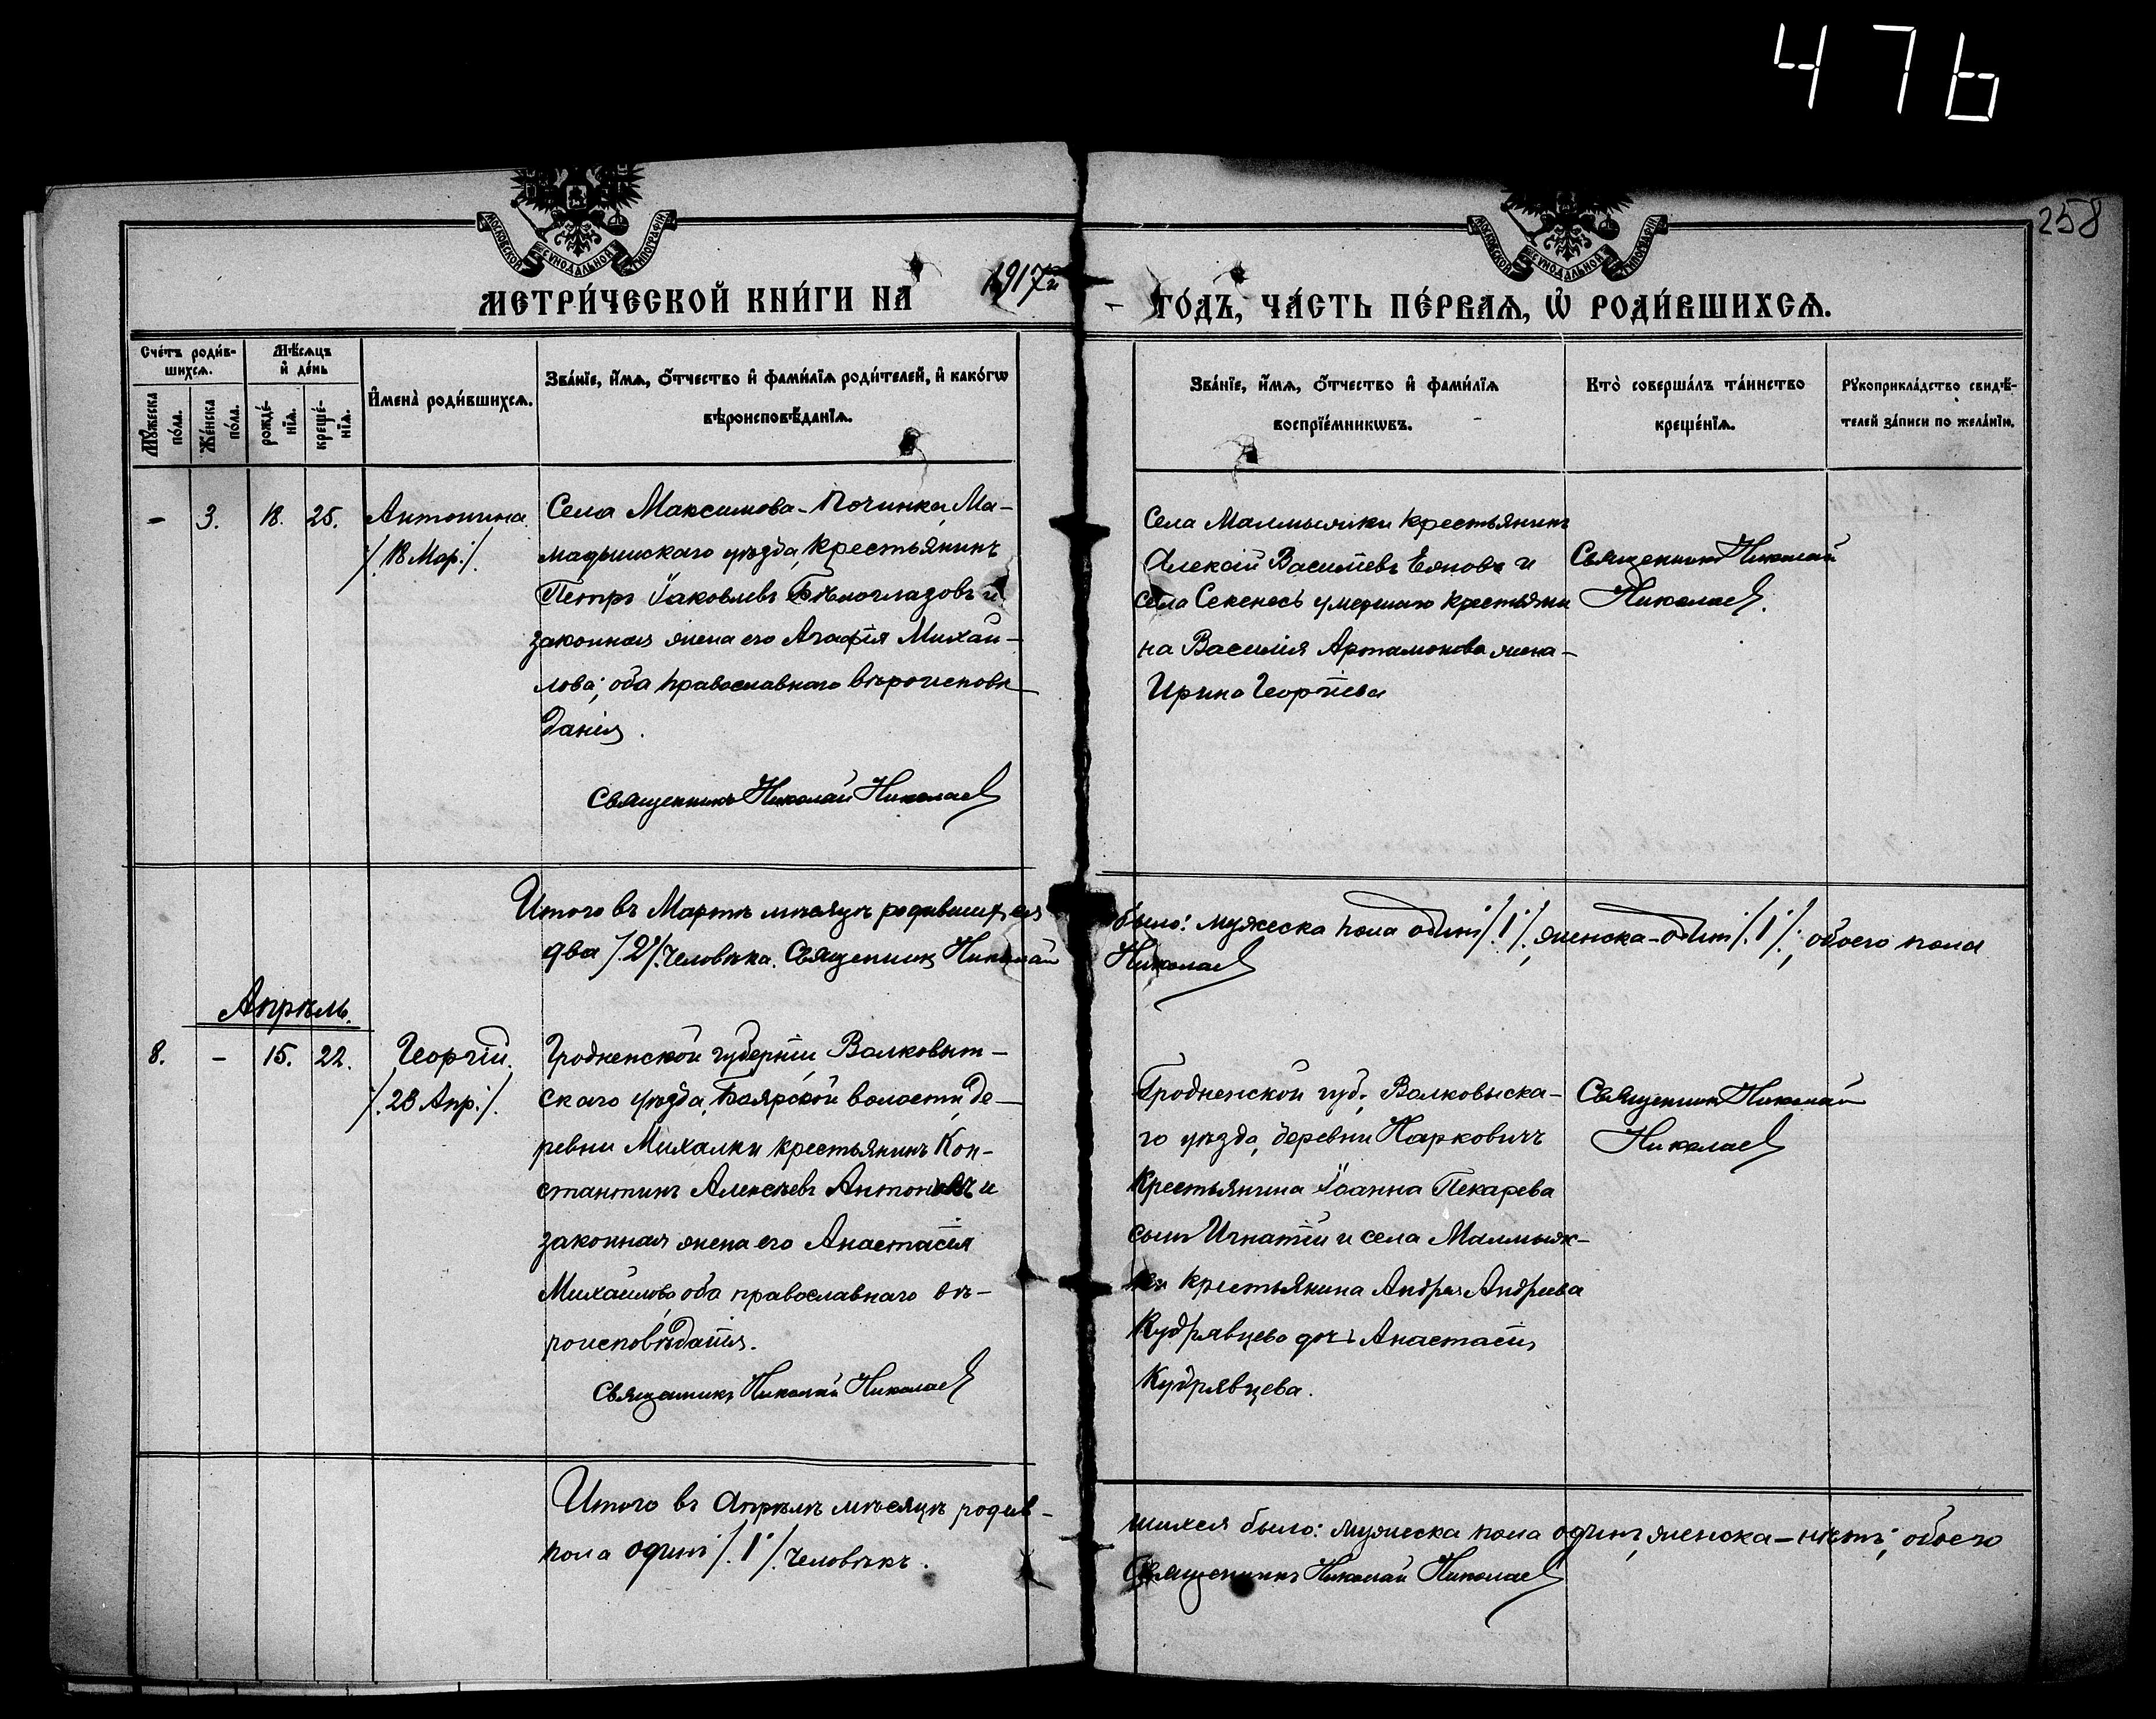 476
258
МОСКОВСКОЙ СѴНОДАЛЬНОЙ ТИПОГРАФІИ
МОСКОВСКОЙ СѴНОДАЛЬНОЙ ТИПОГРАФІИ
МЕТРИ́ЧЕСКОЙ КНИ́ГИ НА 1917й
ГО́ДЪ, ЧА́СТЬ ПЕ́РВАѦ, Ѡ҆ РОДИ́ВШИХСѦ.
Сче́тъ роди́в-
шихсѧ.
Мѣ́сѧцъ
и҆ де́нь
Мꙋ́жеска
по́ла.
Же́нска
по́ла.
рожде́-
нїѧ.
креще́-
нїѧ.
И҆мена̀ роди́вшихсѧ.
Зва́нїе, и҆́мѧ, ѻ҆́тчество и҆ фами́лїѧ роди́телей, и҆ како́гѡ
вѣроисповѣ́данїѧ.
Зва́нїе, и҆́мѧ, ѻ҆́тчество и҆ фами́лїѧ
воспрїе́мникѡвъ.
Кто̀ соверша́лъ та́инство
креще́нїѧ.
Рꙋкоприкла́дство свидѣ́-
телей за́писи по жела́нїю.
- 3. 18. 25. Антонина
/.18 Мар./.
Села Максимова-Починка, Ма-
мадышскаго уѣзда, крестьянинъ
Петръ Іаковлевъ Бѣлоглазовъ и
законная жена его Агафія Михаи-
лова; оба православнаго вѣроисповѣ
данія.
Священникъ Николай Николаев
Села Малмыжки крестьянинъ
Алексій Василіевъ Еянов и
села Секенесь умершаго крестьяни
на Василія Артамонова жена-
Ирина Георгіева
Священникъ Николай
Николаев.
Итого въ Мартѣ мѣсяцѣ родившихся
было: мужеска пола один /.1/., женска-один /.1/.; обоего пола
два /.2/. человѣка. Священник Николай
Николаев
Апрѣль.
8. - 15. 22. Георгій.
/.23 Апр./.
Гродненской губерніи, Волковыт-
скаго уѣзда, Боярской волости, де-
ревни Михалки крестьянинъ Кон-
стантинъ Алексѣевъ Антоновъ и
законная жена его Анастасія
Михаилова, оба православнаго вѣ-
роисповѣданія.
Священникъ Николай Николаев
Гродненской губ., Волковыска-
го уѣзда, деревни Наркевичъ
крестьянина Іоанна Пекарева
сынъ Игнатій и села Малмыж-
ки крестьянина Андрея Андреева
Кудрявцева дочь Анастасія
Кудрявцева.
Священник Николай
Николаев
Итого въ Апрѣлѣ мѣсяцѣ родив-
шихся было: мужеска пола одинъ, женска-нѣтъ; обоего
пола один /.1/. человѣкъ.
Священникъ Николай Николаев